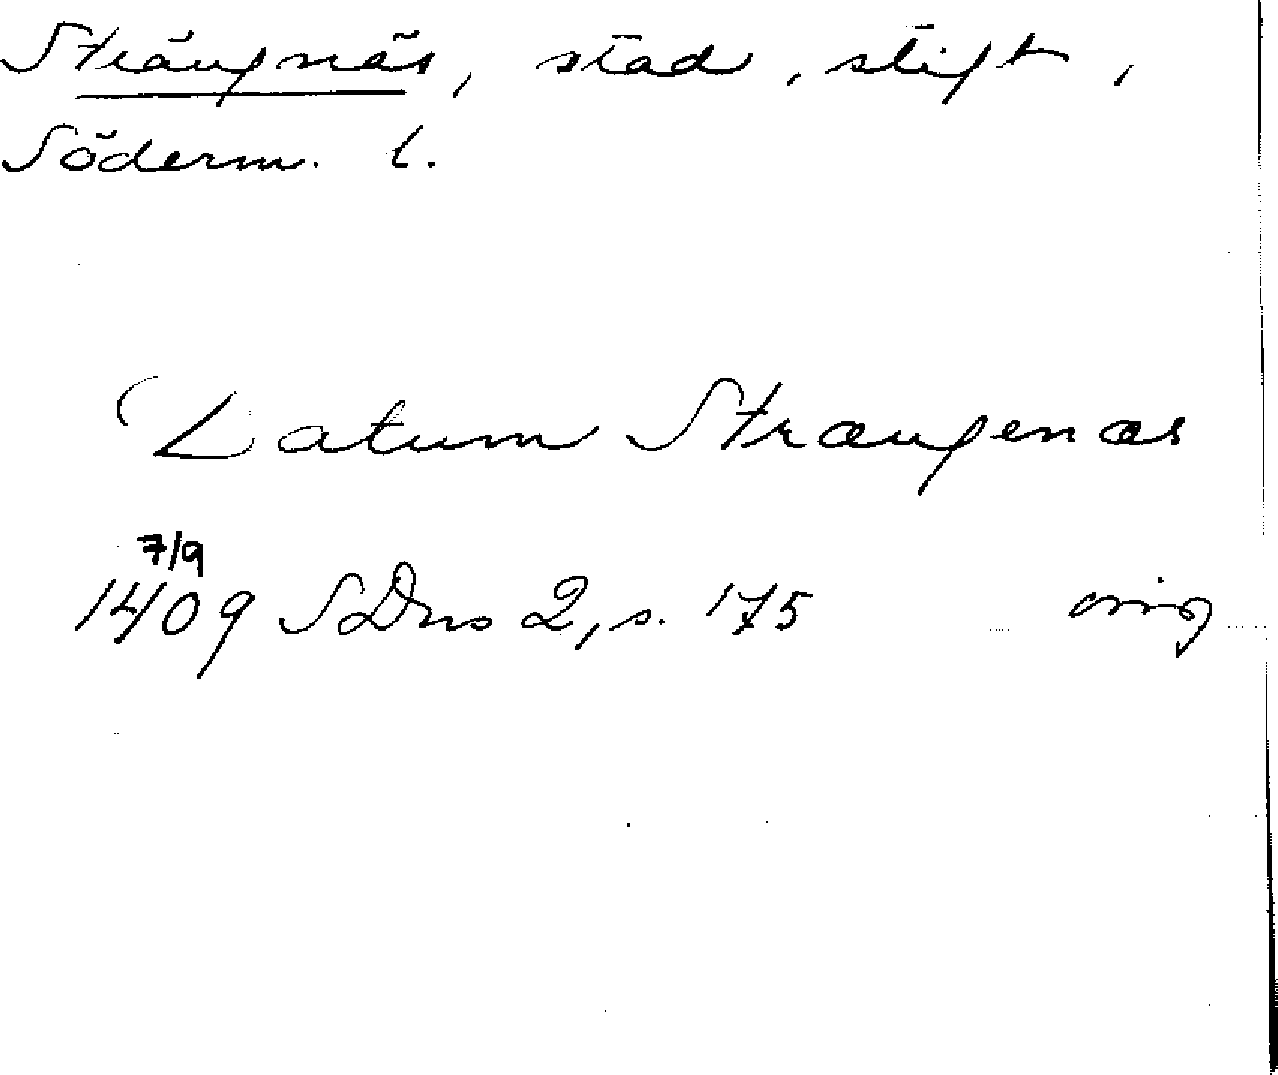 Strängnäs, stad, stift,
Söderm. l.
(Datum Strængenæs
7/9
1409 SDns 2, s. 175 orig